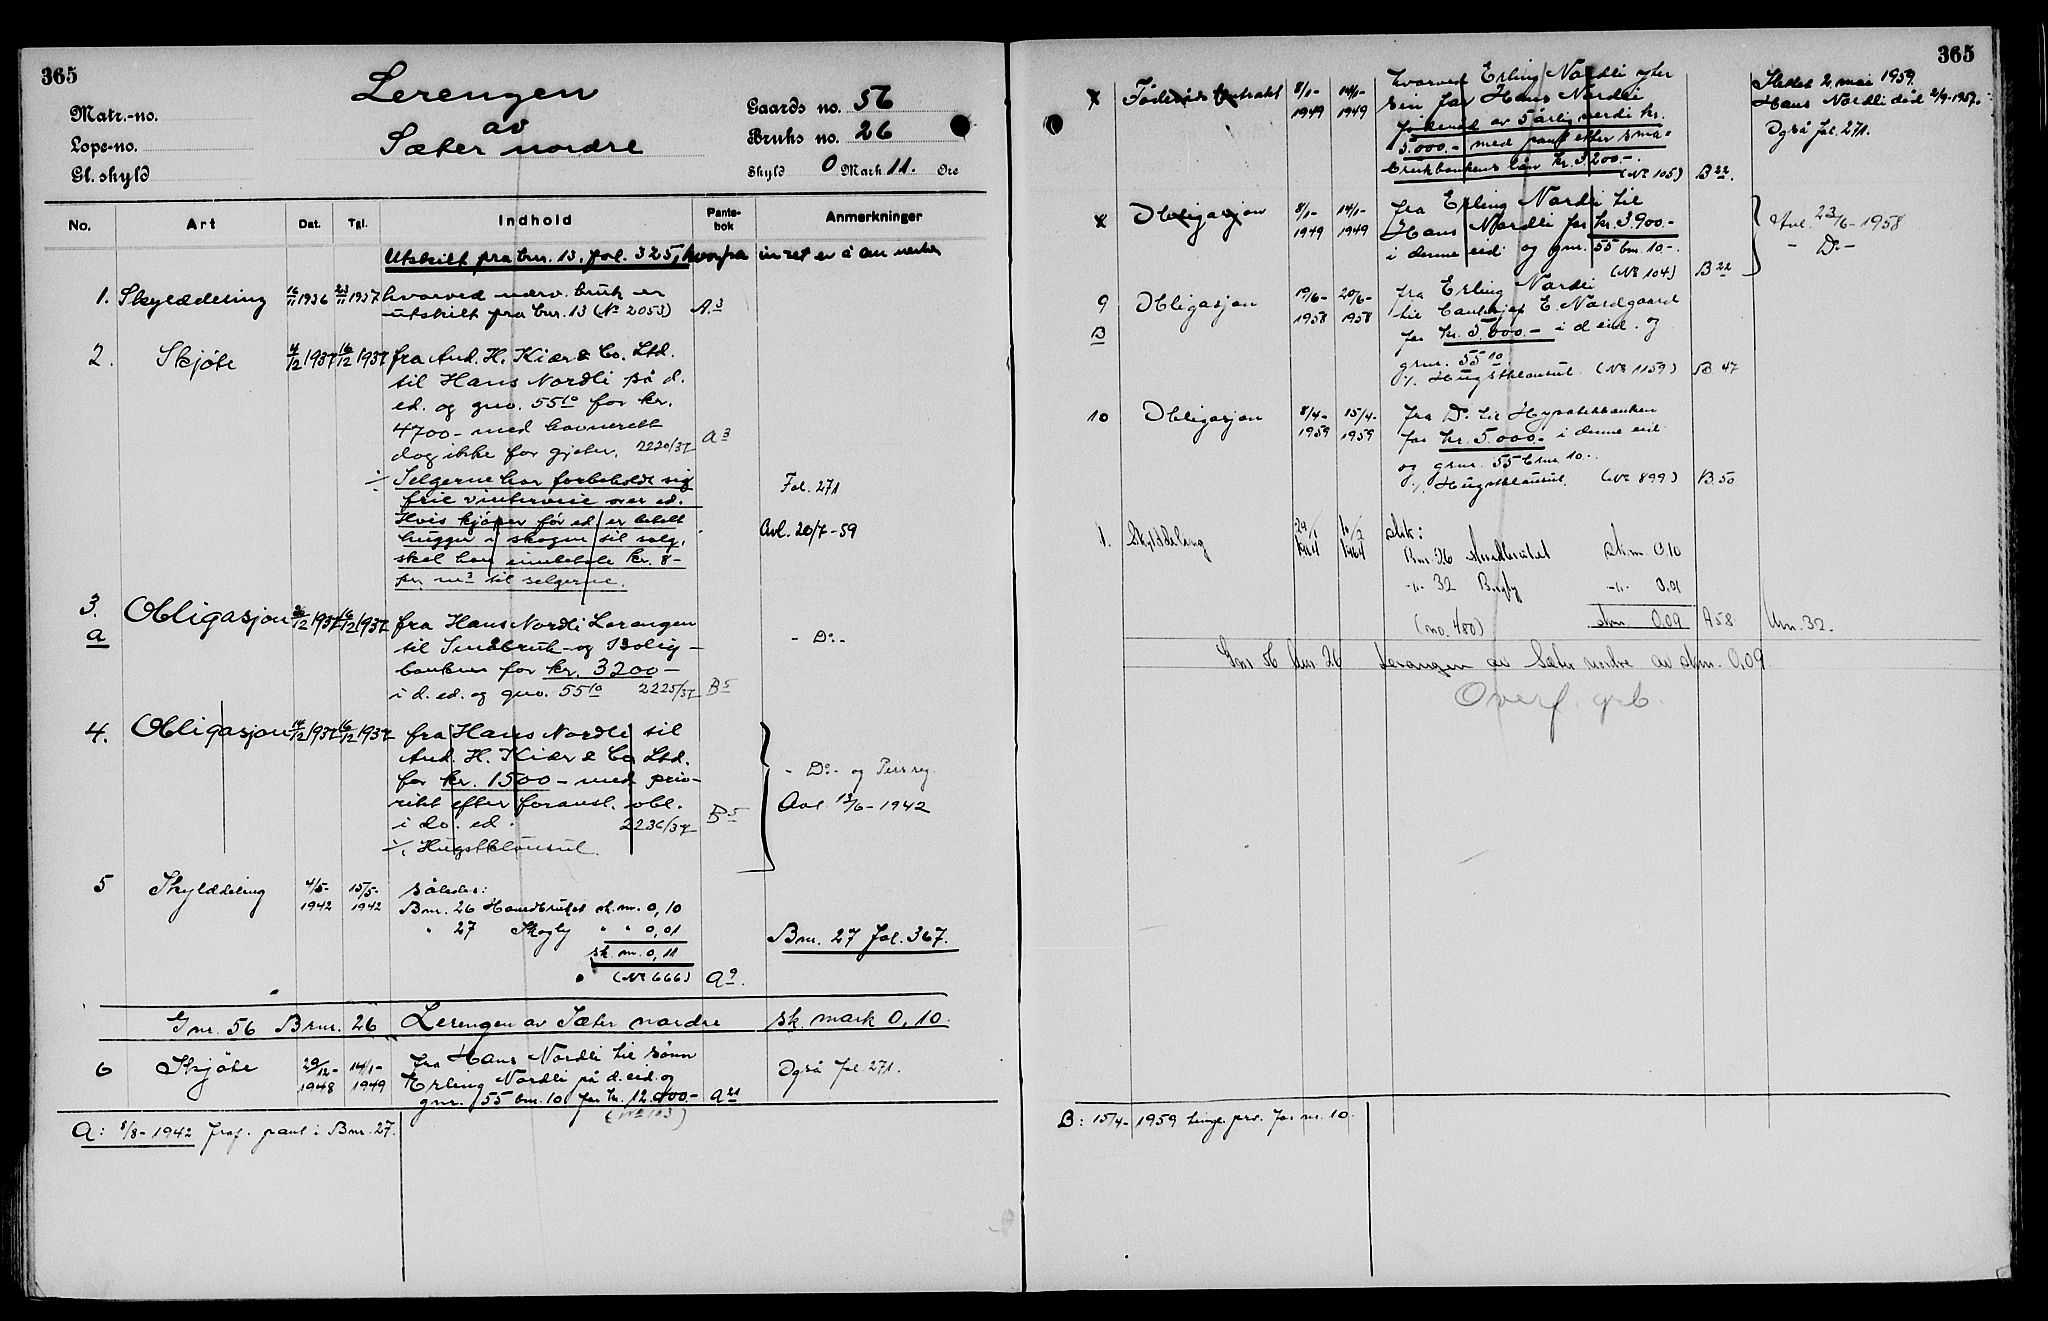 365
Lerengen
av
Sæter nordre
Matr.-no.
Løpe-no.
Gl. skyld
Gaards no. 56
Bruks no. 26
Skyld 0 Mark 11. Øre
No. Art Dat. Tgl. Indhold Pante-bok Anmerkninger
Utskilt fra bnr. 13, fol. 325, hvorfra intet er å anmerke
1. Skylddeling 16/11 1936 23/11 1937 hvorved nærv. bruk er
utskilt fra bnr. 13 (No 2053) A.3
2. Skjøte 4/12 1937 16/12 1937 fra And. H. Kiær & Co. Ltd.
til Hans Nordli på d.
ed. og gno. 55/10 for kr.
4700- med havnerett
dog ikke for gjeter. 2220/37 A3
% Selgerne har forbeholdt sig
frie vinterveie over ed. Fol. 271
Hvis kjøper før ed. er betalt
hugger i skogen til salg, Avl. 20/7-59
skal han innbetale kr. 8-
pr. m3 til selgerne.
3. Obligasjon 16/12 1937 fra Hans Nordli Lerengen
a til Småbruk- og Bolig- - Do.-
banken for kr. 3200-
i d. ed. og gno. 55/10 2225/37 B5
4. Obligasjon 14/12 1937 16/12 1937 fra Hans Nordli til
And. H. Kiær & Co Ltd.
for kr. 1500- med prio- - Do.- og Persreg.
ritet efter foranst. obl. Avl. 13/6-1942
i do. ed. 2236/37 B5
% Hugstklausul.
5 Skylddeling 4/5-1942 15/5-1942 således:
Bnr. 26 Hovedbruket sk. m. 0,10
" 27 Skogly " " 0,01 Bnr. 27 fol. 367.
sk. m. 0,11
(No 666) A9.
Gnr. 56 Bnr. 26 Lerengen av Sæter nordre sk. mark 0,10.
6 Skjøte 29/12-1948 14/1-1949 fra Hans Nordli til sønn
Erling Nordli på d. eid. og Også fol 271.
gnr. 55 bnr. 10 for kr. 12.000- A21
(No 103)
A: 8/8-1942 fraf. pant i Bnr. 27.
365
Føderådskontrakt 8/1-1949 14/1-1949 hvorved Erling Nordli yter
sin far Hans Nordli
føderåd av 5 årlig verdi kr.
5.000.- med pant efter små-
brukbankens lån kr. 3200.-.
(No 105) B22.
Slettet 2 mai 1959.
Hans Nordli død 2/9-1957.
Også fol. 271.
Obligasjon 8/1-1949 14/1-1949 fra Erling Nordli til
Hans Nordli for kr. 3.900.-
i denne eid. og gnr. 55 bnr. 10-.
(No 104) B22
Avl. 23/6-1958
- Do-
9 Obligasjon 19/6-1958 20/6-1958 fra Erling Nordli
B til E. Nordgaard
for kr. 5.000.- i d. eid. og
gnr. 55/10.
%. Hugstklausul. (No 1159) B 47
10 Obligasjon 8/4-1959 15/4-1959 fra Do. til Hypotekbanken
for kr. 5.000.- i denne eid.
og gnr. 55 bnr 10.
%. Hugstklausul. (No 899) B50
1. Skylddeling 1964 1964 slik:
Bnr. 26 Hovedbruket skm 0,10
-"- 32 -"- 0,01
(no. 480) skm 0,09 A58 Bnr. 32.
Gnr 56 bnr. 26 Lerengen av Sæter nordre av skm. 0,09
Overf. grb.
B: 15/4-1959 tingl. prv. for nr. 10.